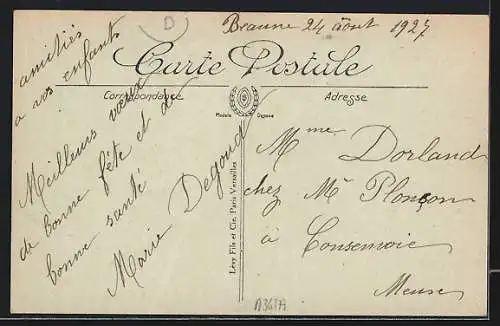 D
Beaune 24 août 1927
Carte Postale
Correspondance
Adresse
Modèle Déposé
amitiés
à vos enfants
Meilleurs vœux
de bonne fête et de
bonne santé
Marie Degoud
Lévy Fils et Cie, Paris Versailles
Mme Dorland
chez Mr Plonçon
à Consenvoie
Meuse